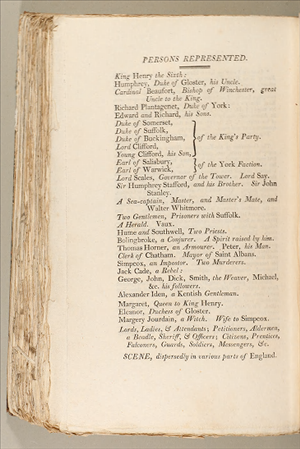 PERSONS REPRESENTED.
King Henry the Sixth:
Humphrey, Duke of Gloster, his Uncle.
Cardinal Beaufort, Bishop of Winchester, great
Uncle to the King.
Richard Plantagenet, Duke of York:
Edward and Richard, his Sons.
Duke of Somerset,
Duke of Suffolk,
Duke of Buckingham, } of the King's Party.
Lord Clifford,
Young Clifford, his Son,
Earl of Salisbury, } of the York Faction.
Earl of Warwick,
Lord Scales, Governor of the Tower. Lord Say.
Sir Humphrey Stafford, and his Brother. Sir John
Stanley.
A Sea-captain, Master, and Master's Mate, and
Walter Whitmore.
Two Gentlemen, Prisoners with Suffolk.
A Herald. Vaux.
Hume and Southwell, Two Priests.
Bolingbroke, a Conjurer. A Spirit raised by him.
Thomas Horner, an Armourer. Peter, his Man.
Clerk of Chatham. Mayor of Saint Albans.
Simpcox, an Impostor. Two Murderers.
Jack Cade, a Rebel:
George, John, Dick, Smith, the Weaver, Michael,
&c. his followers.
Alexander Iden, a Kentish Gentleman.
Margaret, Queen to King Henry.
Eleanor, Duchess of Gloster.
Margery Jourdain, a Witch. Wife to Simpcox.
Lords, Ladies, & Attendants; Petitioners, Aldermen,
a Beadle, Sheriff, & Officers; Citizens, Prentices,
Falconers, Guards, Soldiers, Messengers, &c.
SCENE, dispersedly in various parts of England.